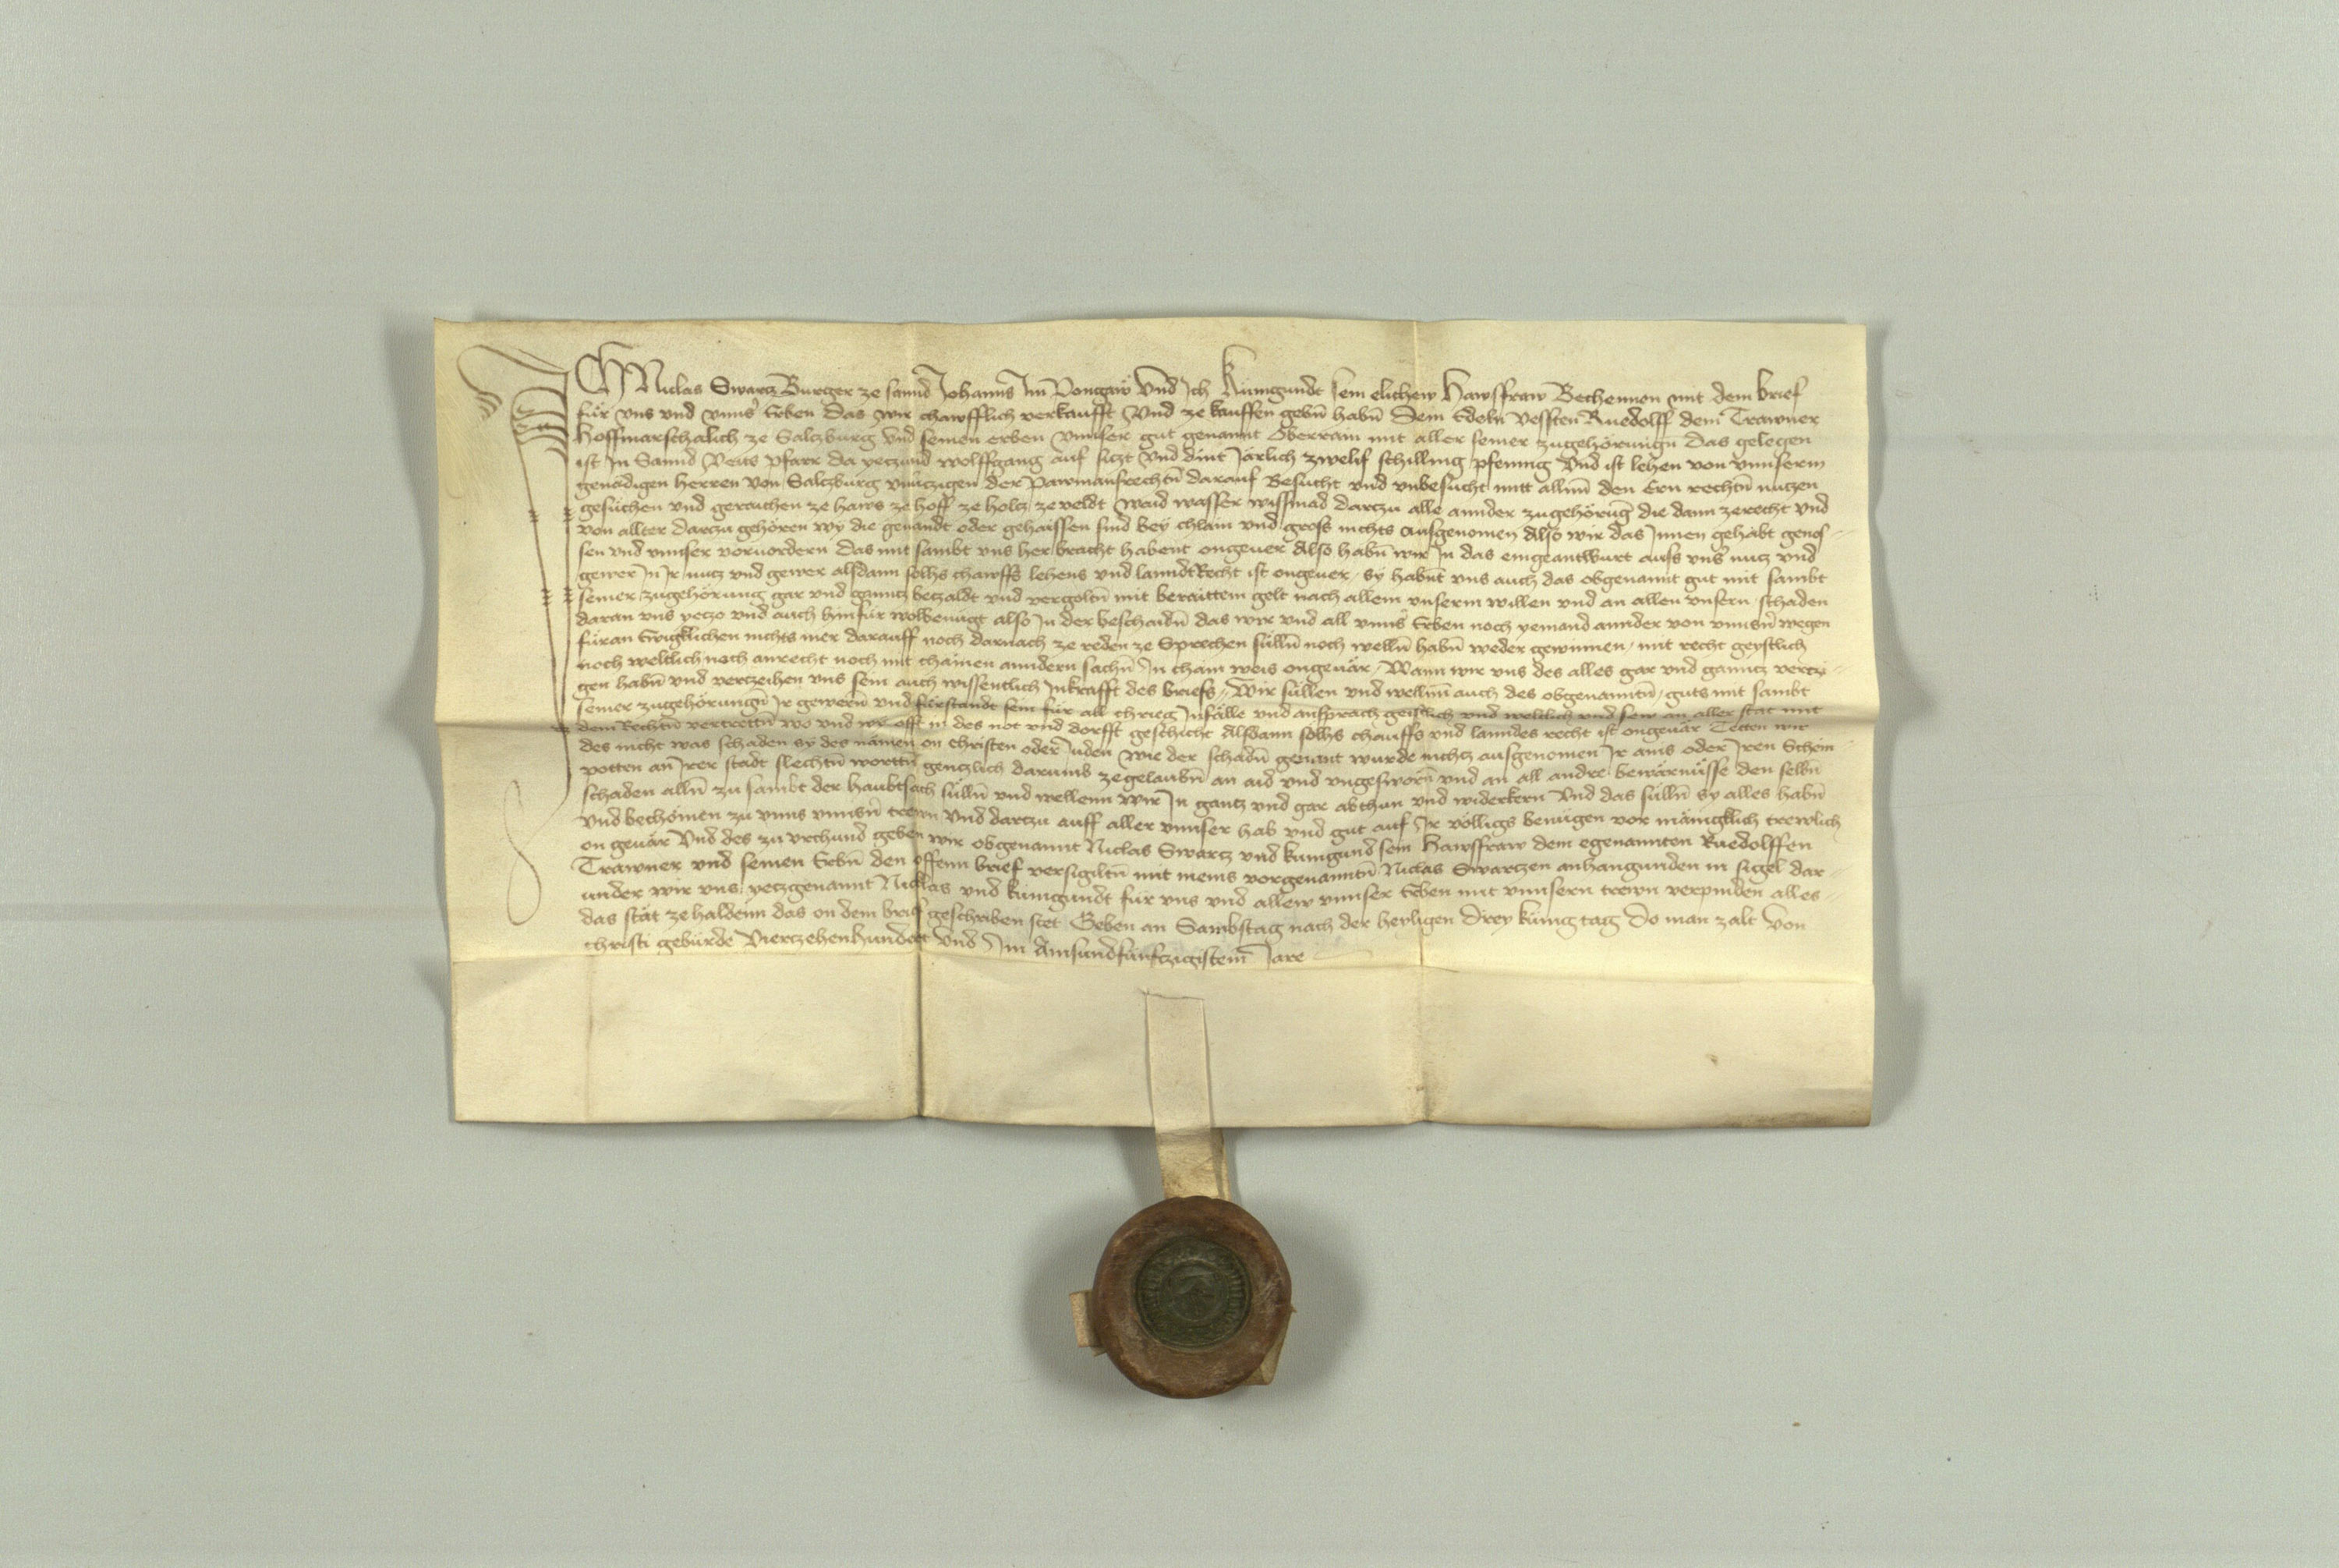 ICH Niclas Swartz Burger ze sannd Johanns Im Pongaw Vnd Ich Kunigundt sein elichew Hawsfraw Bechennen mit dem brief
für vns vnd vnns' Erben das wir chawfflich verkaufft Vnd ze kauffen gebn̄ habn̄ Dem Edeln Vessten Ruedolff dem Trawner
Hoffmarschalich ze Saltzburg Vnd seinen erben Vnnser gut genannt Oberrain mit aller seiner zugehörungn̄ das gelegen
ist In Sannd Veits Pfarr da yeczund wolffgang auf siczt Vnd dint Järlich zwelif schilling pfening Vnd ist lehen von Vnnserm
genädigen herren Von Saltzburg vnuczigen der Pawmansrechtn̄ darauf Besucht vnd vnbesucht mitt allnn̄ den Ern rechtn̄ nutzen
gesüchen vnd geruchen ze haws ze hoff ze holcz ze veldt Waid wasser wissmad darczu alle annder zugehörūg die dann zerecht vnd
von allter darczu gehören wy die genandt oder gehaissen sind bey chlain vnd gross nichts ausgenomen Also wir das Innen gehabt genos-
sen vnd vnnser voruordern das mit sambt vns her bracht habent ongeuer Also habn̄ wir In das eingeantwurt auss vns' nutz vnd
gewer In Ir nutz vnd gewer alsdann solhs chawffs lehens vnd lanndtRecht ist ongeuer, sy habn̄t vns auch das obgenannt gut mit sambt
seiner zugehörung gar vnd ganntz betzaldt vnd vergoltn̄ mit beraittem gelt nach allem vnserm willen vnd an allen vnsern schaden
daran vns yeczo vnd auch hinfür wolbenügt also In der beschaidn̄ das wir vnd all vnns' Erben noch yemand annder von vnnsn̄ wegen
füran Ewigklichen nichts mer darauff noch darnach ze reden ze Sprechen süllñ noch wellñ habn̄ weder gewinnen, mit recht geystlich
noch weltlich noch anrecht noch mit chainen anndern sachn̄ In chain weis ongeuär, Wann wir vns des alles gar vnd ganntz vertzi-
gen habn̄ vnd vertzeihen vns sein auch wissentlich Inkrafft des briefs, Wir süllen vnd wellnn̄ auch des obgenanntn̄, guts mit sambt
seiner zugehörungn̄ Ir gewern̄ vnd fürstandt sein für all chrieg Infälle vnd ansprach geistlich vnd weltlich vnd sew an aller stat mit
dem Rechtn̄ vertrettn̄ wo vnd wie offt in des not vnd dorfft geschicht Alsdann solhs chauffs vnd lanndes recht ist ongeuär Tetten wir
des nicht was schaden sy des nämen on Christen oder Juden wie der schadn̄ genant wurde nichtz ausgenomen Ir ains oder Iren Schein
potten an Irer stadt slechtn̄ worttn̄ gentzlich darumb zegelaubn̄ an aid vnd vngesworn̄ vnd an all andre bewärnüsse den selbn̄
schaden alln̄ zu sambt der haubtsach sülln̄ vnd wellenn wir In gantz vnd gar abthun vnd widerkern Vnd das sülln̄ sy alles habn̄
Vnd bechömen zu vnns vnnsn̄ trewn vnd dartzu auff aller vnnser hab vnd gut auf Ir völligs benügen vor mänigklich trewlich
on geuär Vnd des zu vrchund geben wir obgenannt Niclas Swartz vnd kunigund sein Hawsfraw dem egenannten Ruedolffen
Trawner vnd seinen Erbn̄ den offenn brief versigiltn̄ mit meins vorgenanntn̄ Niclas Swartzen anhangunden in sigel dar-
under wir vns yetzgenannt Nicklas vnd kunigundt für vns vnd allew vnnser Erben mit vnnsern trewn verpinden alles
das stät ze haldenn das on dem brief geschriben stet Geben an Sambstag nach der heyligen Drey künig tag Do man zalt Von
christi gebürde Viertzehenhundert Vnd Im Ainsundfünftzigistem Jare